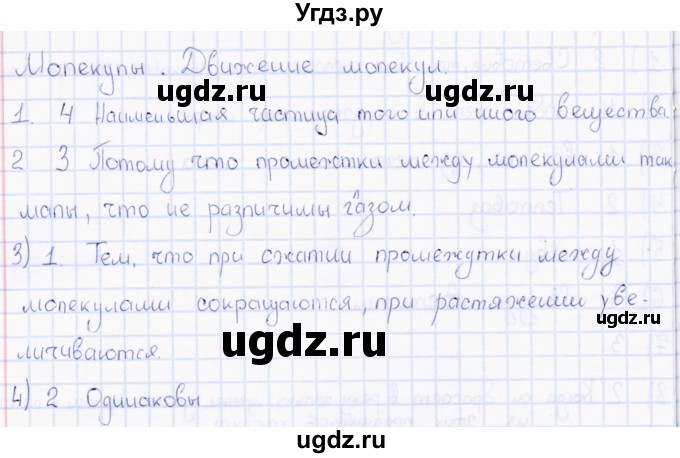 Угдз.ру
Молекулы. Движение молекул.
ugdz.ru ugdz.ru
1. 4 Наименьшая частица того или иного вещества.
2 3 Потому что промежтки между молекулами так
малы, что не различимы глазом.
ugdz.ru ugdz.ru
3) 1. Тем, что при сжатии промежутки между
молекулами сокращаются, при растяжении уве-
личиваются.
ugdz.ru ugdz.ru
4) 2 Одинаковы
ugdz.ru